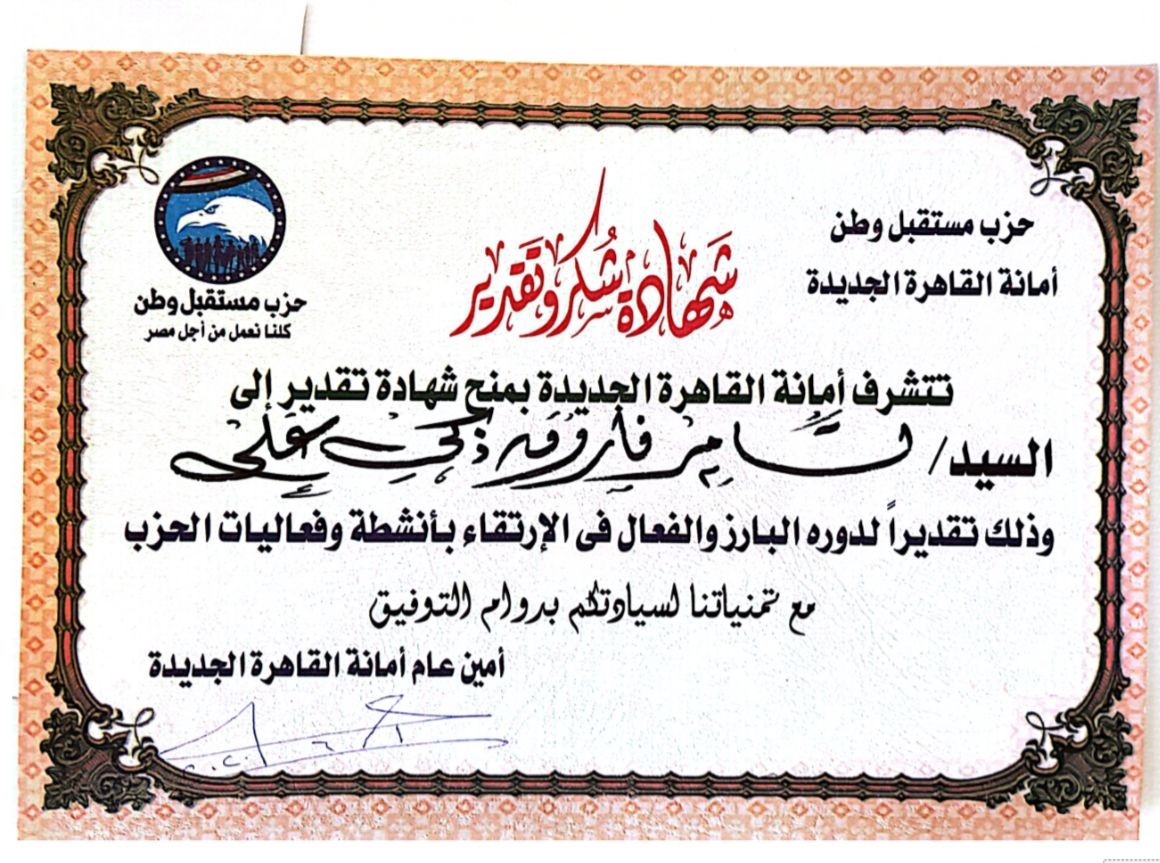 حزب مستقبل وطن
أمانة القاهرة الجديدة
شهادة شكر وتقدير
حزب مستقبل وطن
كلنا نعمل من أجل مصر
تتشرف أمانة القاهرة الجديدة بمنح شهادة تقدير إلى
السيد/ تامر فاروق ذكى على
وذلك تقديراً لدوره البارز والفعال فى الإرتقاء بأنشطة وفعاليات الحزب
مع تمنياتنا لسيادتكم بدوام التوفيق
أمين عام أمانة القاهرة الجديدة